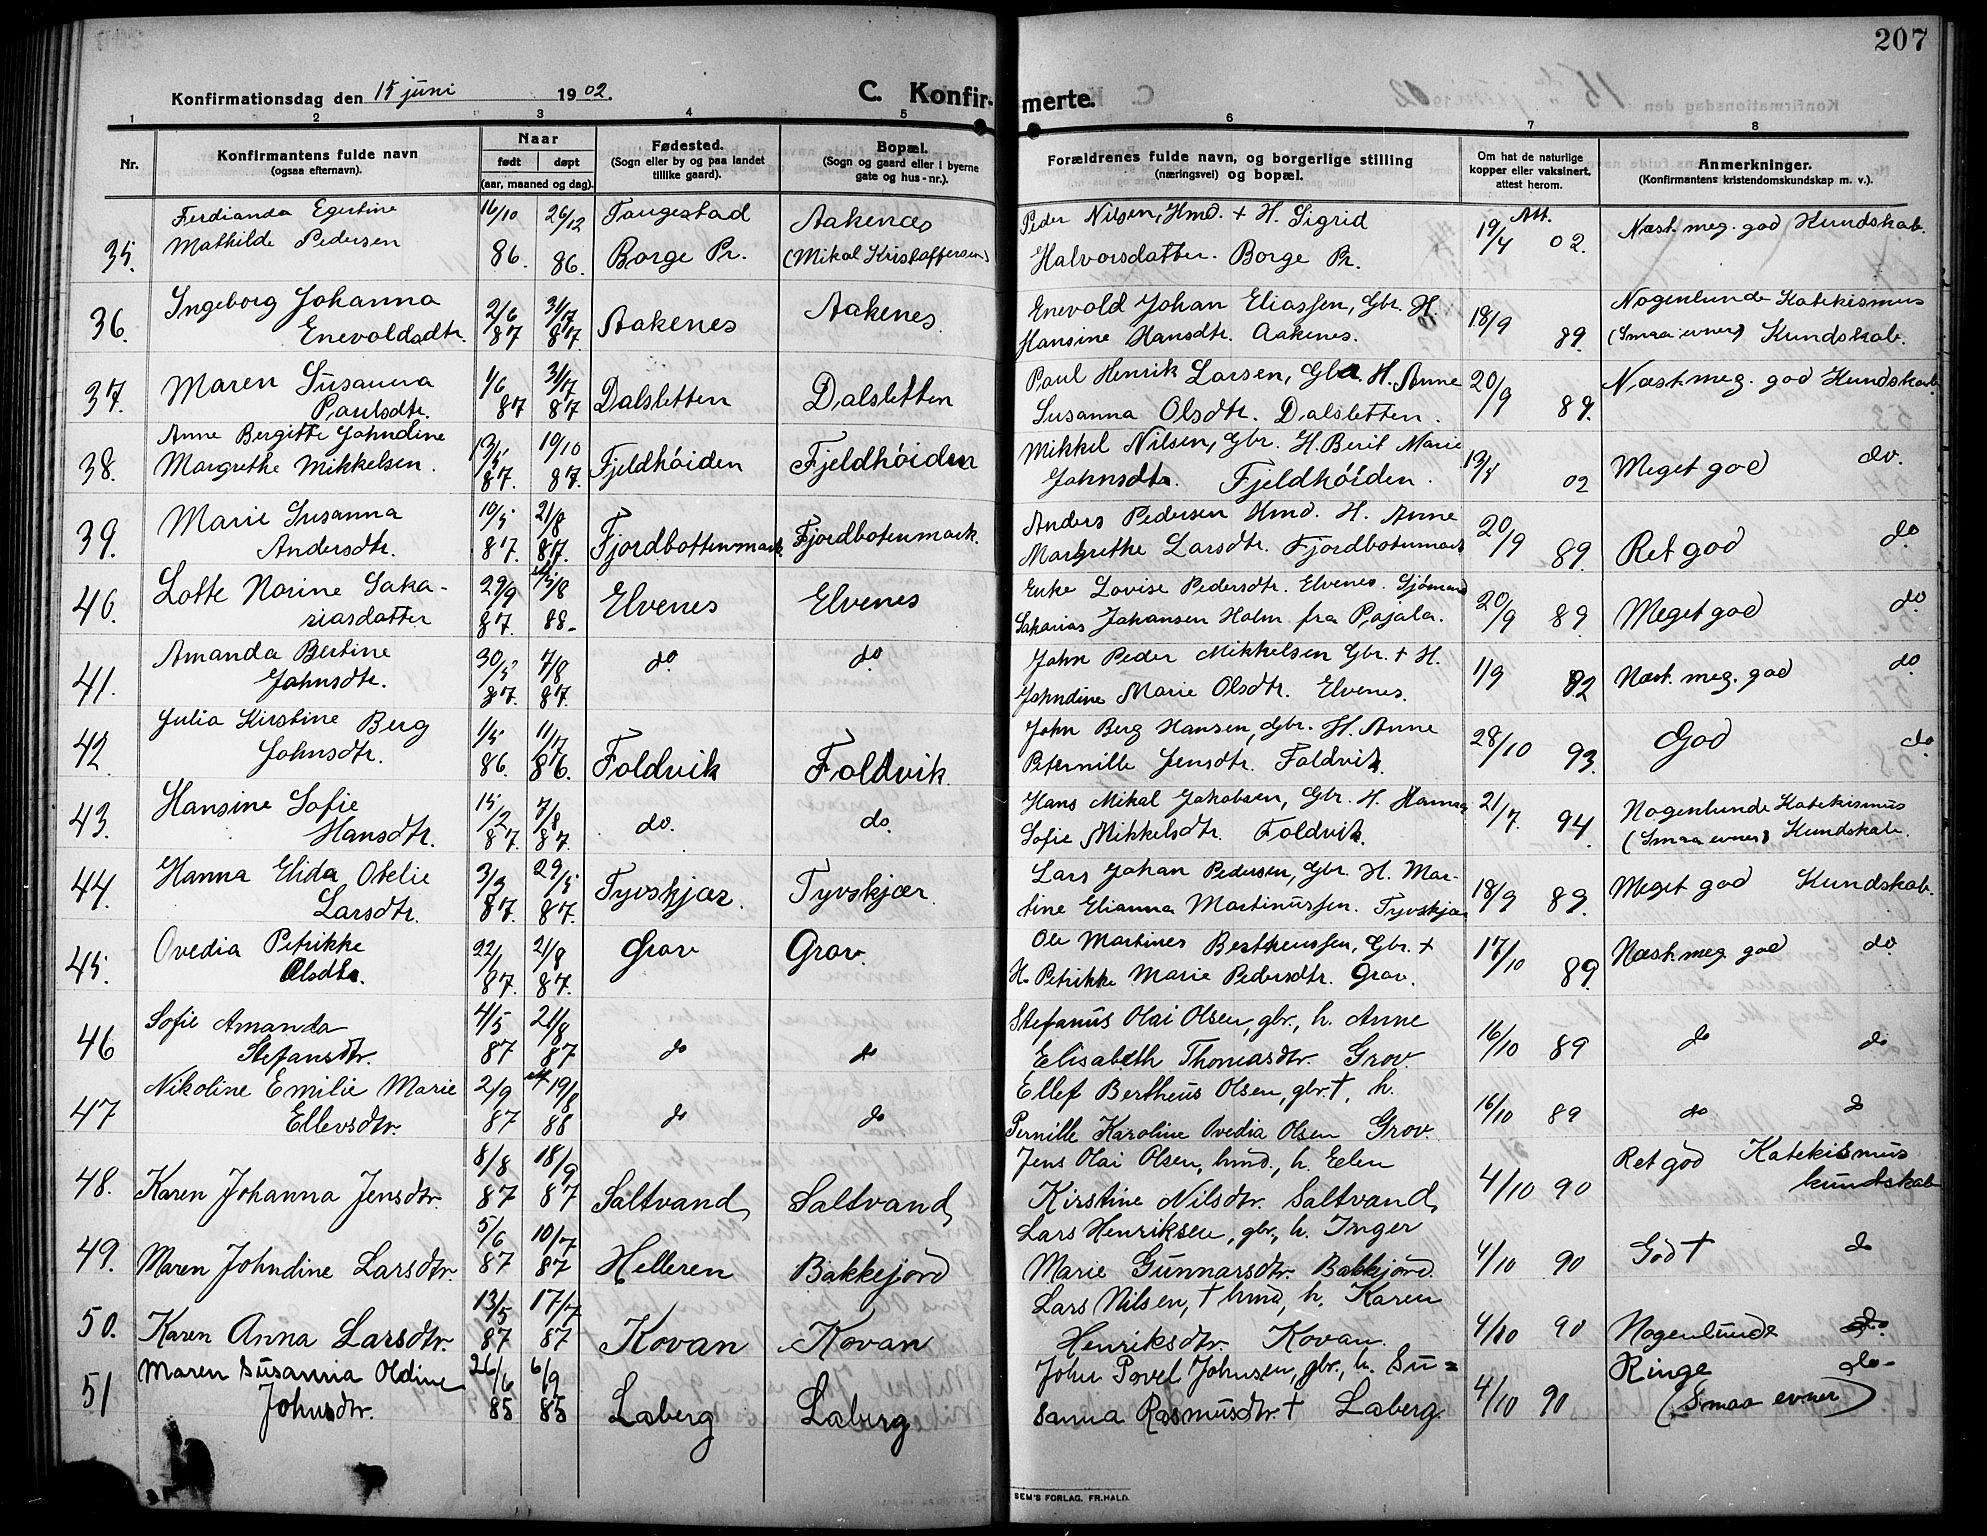 207
Konfirmationsdag den 15 juni 1902.
C. Konfirmerte.
1 2 3 4 5 6 7 8
Nr.
Konfirmantens fulde navn
(ogsaa efternavn).
Naar
født døpt
(aar, maaned og dag).
Fødested.
(Sogn eller by og paa landet
tillike gaard).
Bopæl.
(Sogn og gaard eller i byerne
gate og hus-nr.).
Forældrenes fulde navn, og borgerlige stilling
(næringsvei) og bopæl.
Om hat de naturlige
kopper eller vaksinert,
attest herom.
Anmerkninger.
(Konfirmantens kristendomskundskap m. v.).
Ferdianda Egertine 16/10 26/12 Tangestad Aakenes Peder Nilsen, Hmd. + H. Sigrid 19/4 Att. Næst meg. god Kundskab.
35. Mathilde Pedersen 86. 86. Borge Pr. (Mikal Kristoffersen) Halvorsdatter. Borge Pr. 02.
36. Ingeborg Johanna 2/6 31/7 Aakenes Aakenes. Enevold Johan Eliassen, Gbr. H. 18/9 Nogenlunde Katekismus
Enevoldsdtr. 87 87 Hansine Hansdtr. Aakenes. 89. (Smaa evner) Kundskab.
37. Maren Susanna 1/6 31/7 Dalsletten Dalsletten Paul Henrik Larsen, Gbr. H. Anne 20/9 Næst meg. god Kundskab
Paulsdtr. 87 87 Susanna Olsdtr. Dalsletten. 89.
Anne Bergitte Johndine 13/5 19/10 Mikkel Nilsen, Gbr. H. Berit Marie 13/4
38. Margrethe Mikkelsen. 87. 87. Fjeldhöiden Fjeldhöiden Johnsdtr. Fjeldhöiden. 02 Meget god do.
39. Marie Susanna 10/5 21/8 Anders Pedersen Hmd. H. Anne 20/9
Andersdtr. 87. 87. Fjordbottenmark Fjordbotenmark. Margrethe Larsdtr. Fjordbotnmark 89. Ret god do.
40. Lotte Norine Saka- 29/9 /8 Elvenes Elvenes Enke Lovise Pedersdtr. Elvenes. Sjömand 20/9 Meget god do.
riasdatter 87. 88. Sakarias Johansen Holm fra Pajala. 89
41. Amanda Bertine 30/5 7/8 do. do John Peder Mikkelsen Gbr. + H. 1/9 Næst. meg. god do
Johnsdtr. 87. 87. Johndine Marie Olsdtr. Elvenes. 82
42. Julia Kirstine Berg 1/5 11/7 John Berg Hansen, Gbr. H. Anne 28/10 God do
Johnsdtr. 86. 86. Foldvik Foldvik. Peternille Jensdtr. Foldvik. 93.
43. Hansine Sofie 15/2 7/8 do. do. Hans Mikal Jakobsen, Gbr. H. Hanna 21/7. Nogenlunde Katekismus
Hansdtr. 87. 87. Sofie Mikkelsdtr. Foldvik. 94. (Smaa evner) Kundskab.
44. Hanna Elida Otelie 3/3 29/5 Tyvskjær. Tyvskjær. Lars Johan Pedersen, Gbr. H. Mar- 18/9 Meget god Kundskab.
Larsdtr. 87. 87. tine Elianna Martinussen. Tyvskjær 89.
45. Ovedia Petrikke 22/1 21/8 Grav Grav. Ole Martines Bertheussen, Gbr. + 17/10 Næst meg. god do.
Olsdtr. 87. 87. H. Petrikke Marie Pedersdtr. Grav. 89
46 Sofie Amanda 4/5 21/8 Stefanus Olai Olsen, gbr., h. Anne 16/10 89 do do
Stefansdtr. 87 87 do do Elisabeth Thomasdtr. Grov.
47 Nikoline Emilie Marie 2/9 19/8 Ellef Bertheus Olsen, gbr. †, h. 16/10 89 do do
Ellevsdtr. 87 88 do do Pernille Karoline Ovedia Olsen Grov.
48. Karen Johanna Jensdtr. 8/8 18/9 Jens Olai Olsen, hmd., h. Elen Ret god Katekismus
87 87 Saltvand Saltvand Kirstine Nilsdtr. Saltvand 4/10 90 kundskab
49. Maren Johndine Larsdtr. 5/6 10/7 Lars Henriksen, gbr, h. Inger God † do
87 87 Helleren Bakkejord Marie Gunnarsdtr. Bakkjord. 4/10 90
50. Karen Anna Larsdtr. 13/5 17/7 Lars Nilsen, † hmd, h. Karen
87 87 Kovan Kovan Henriksdtr. Kovan. 4/10 90 Nogenlunde do.
51 Maren Susanna Oldine 26/6 6/9 John Povel Johnsen, gbr., h. Su= Ringe do-
Johnsdtr. 85 85 Laberg Laberg sanna Rasmusdtr. † Laberg. 4/10 90 (Smaa evner)
SEM'S FORLAG. FR.HALD.